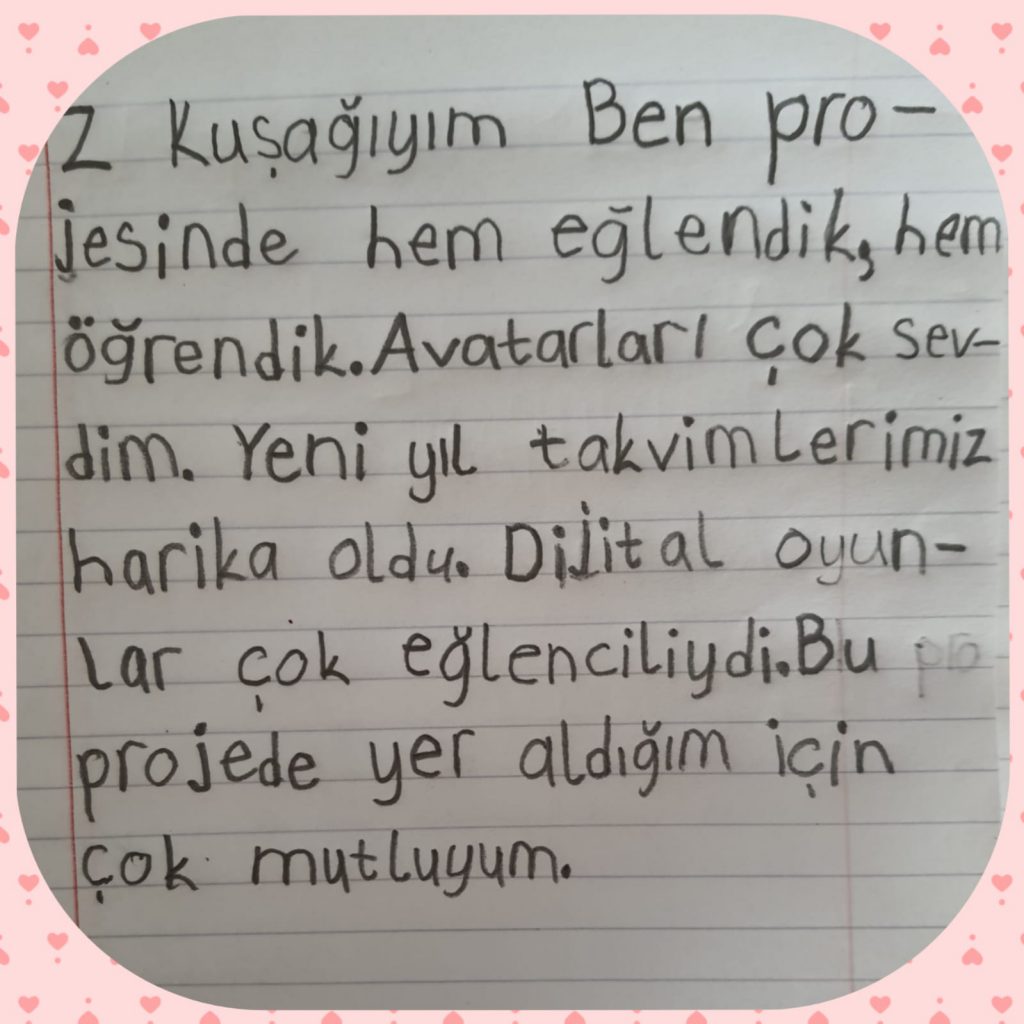 Z Kuşağıyım Ben pro-
jesinde hem eğlendik, hem
öğrendik. Avatarları çok sev-
dim. Yeni yıl takvimlerimiz
harika oldu. Dijital oyun-
lar çok eğlenciliydi. Bu pro
projede yer aldığım için
çok mutluyum.